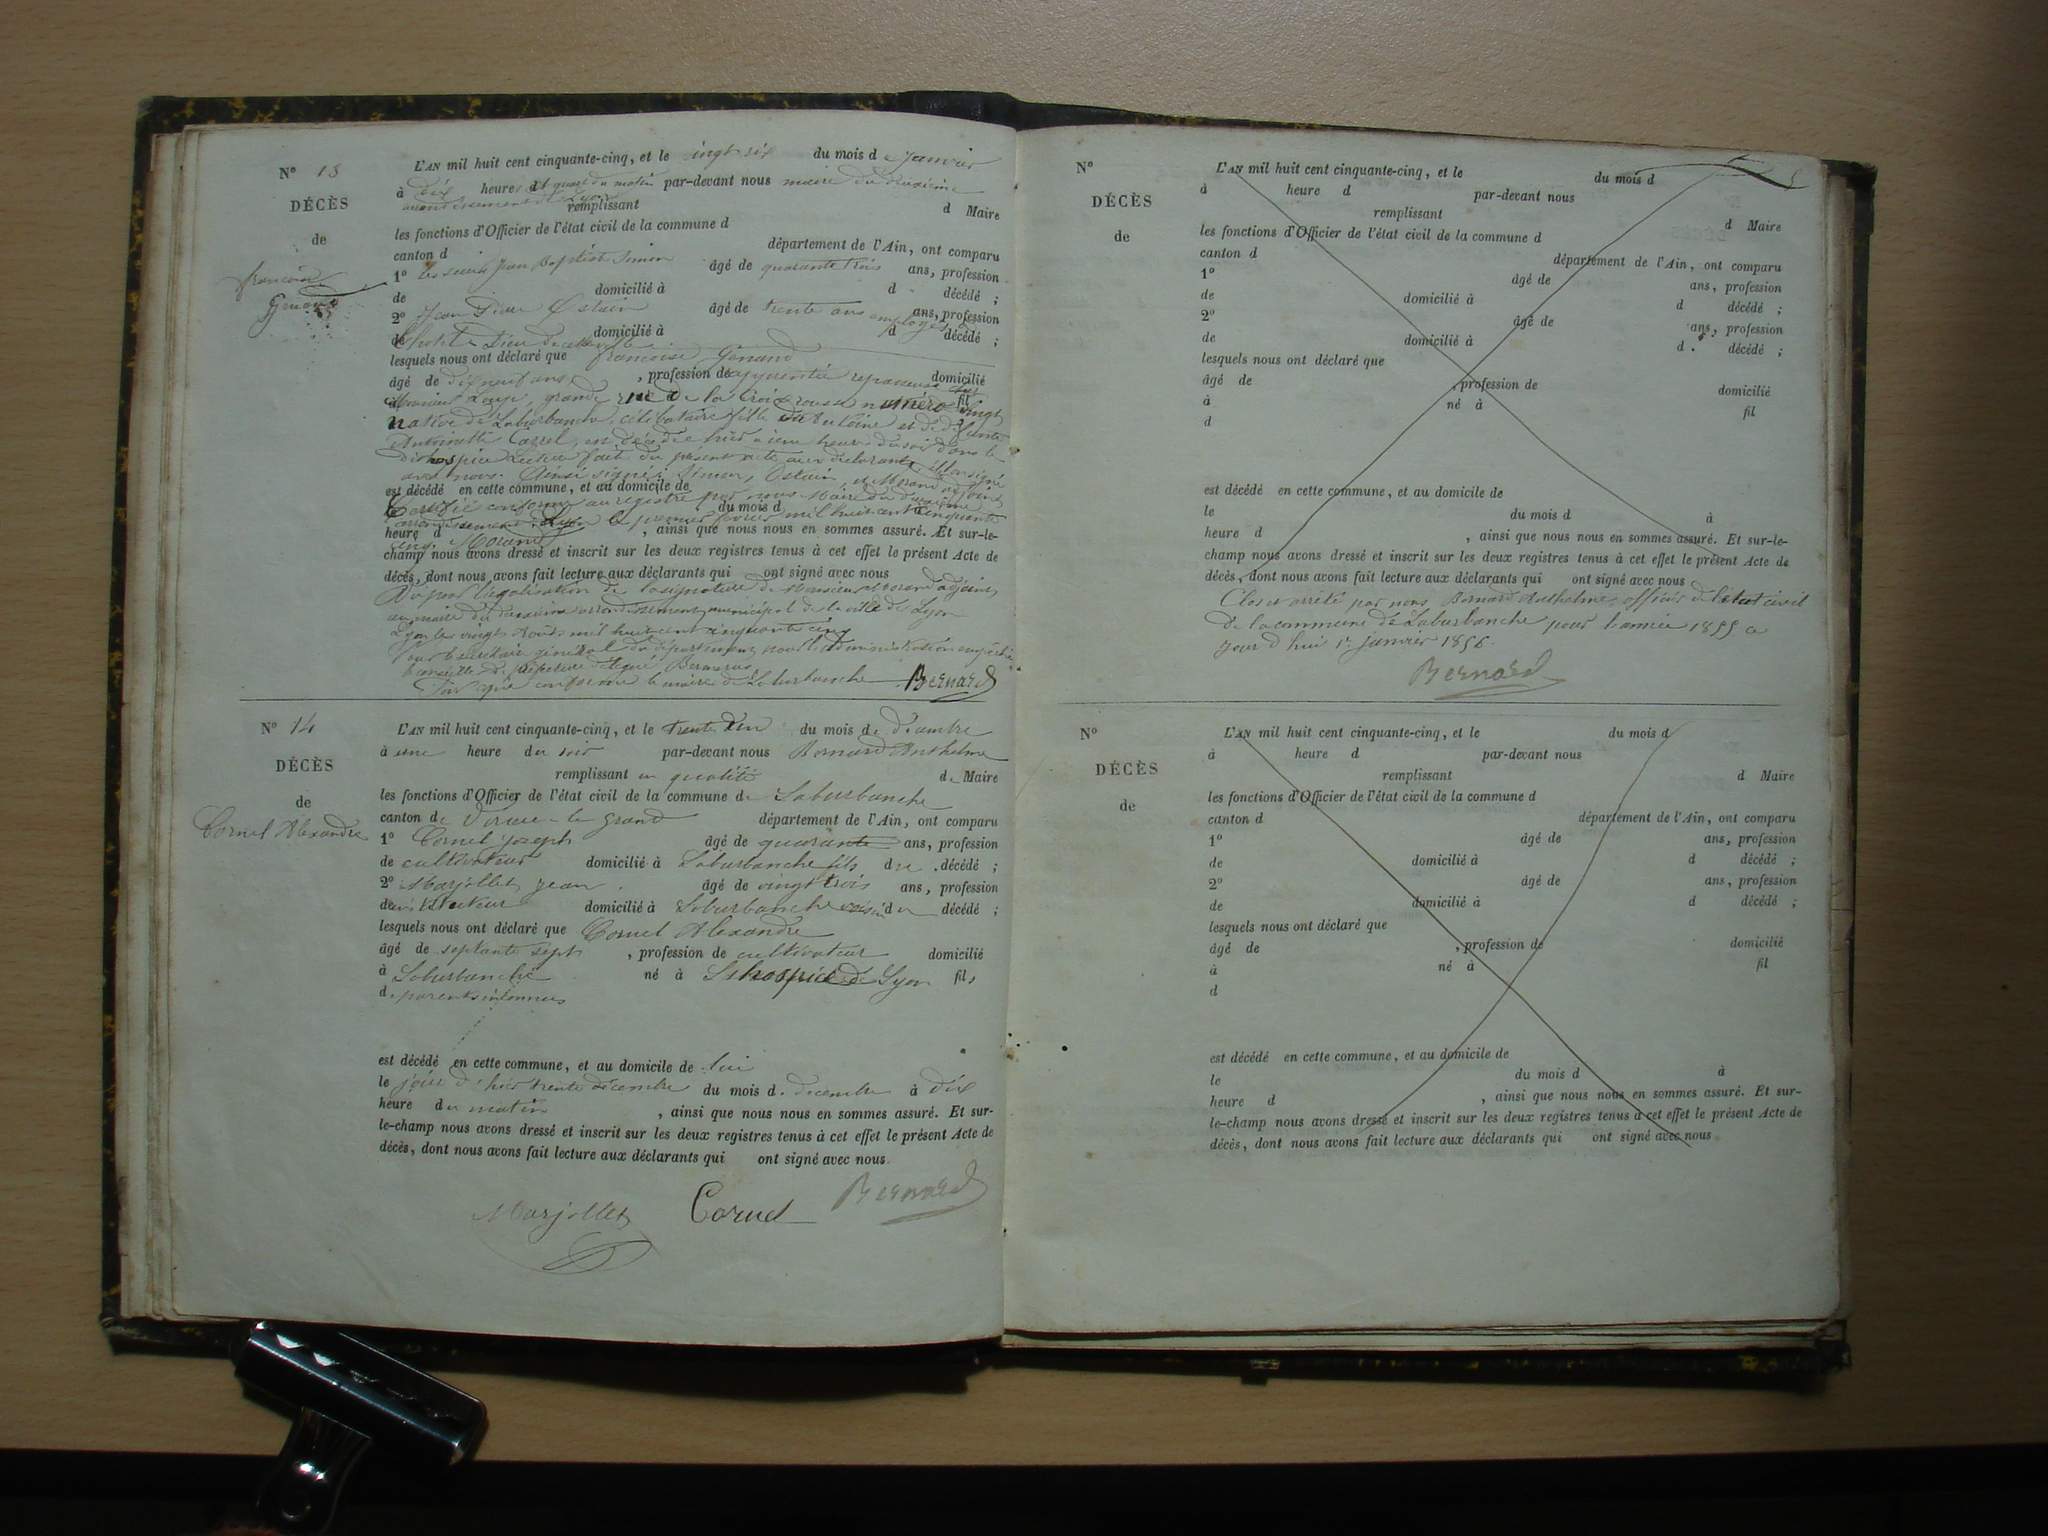 N° 13
DÉCÈS
de
françoise
Genand
L'AN mil huit cent cinquante-cinq, et le vingt six du mois de janvier
à dix heures et quart du matin par-devant nous maire du deuxième
arrondissement de Lyon remplissant d Maire
les fonctions d'Officier de l'état civil de la commune d
canton d département de l'Ain, ont comparu
1° les sieurs Jean Baptiste Simon âgé de quarante trois ans, profession
de domicilié à d décédé ;
2° Jean Pierre Ostain âgé de trente ans employés à ans, profession
de l'hotel Dieu de cette ville domicilié à d décédé ;
lesquels nous ont déclaré que françoise Genand
âgé de dix neuf ans , profession de apprentie repasseuse chez domicilié
Monsieur Loup, grande rue de la Croix rousse numéro vingt fil
native de Laburbanche, célibataire fille d'Antoine et de défunte
Antoinette Carrel, en décédée hier à heure du soir dans le
dit hospice Lecture faite du présent acte aux déclarants, ils ont signé
avec nous. Ainsi signés Simon, Ostain, et Morand adjoint
est décédé en cette commune, et au domicile de
Certifié conforme au registre par nous Maire du deuxième
le du mois d
arrondissement Lyon le premier février mil huit cent cinquante
heure d , ainsi que nous nous en sommes assuré. Et sur-le-
cinq. Morand
champ nous avons dressé et inscrit sur les deux registres tenus à cet effet le présent Acte de
décès, dont nous avons fait lecture aux déclarants qui ont signé avec nous
Vu pour légalisation de la signature de Monsieur Morand adjoint
au maire du deuxième arrondissement municipal de la ville de Lyon
Lyon le vingt Août mil huit cent cinquante cinq
Pour le secrétaire général du département pour l'administration empêché
le conseiller de préfecture délégué
Pour copie conforme le maire de Laburbanche Bernard
N° 14
DÉCÈS
de
Cornet Alexandre
L'AN mil huit cent cinquante-cinq, et le trente un du mois de décembre
à une heure du soir par-devant nous Bernard Anthelme
remplissant en qualité de Maire
les fonctions d'Officier de l'état civil de la commune de Laburbanche
canton de Virieu-le grand département de l'Ain, ont comparu
1° Cornet joseph âgé de quarante ans, profession
de cultivateur domicilié à Laburbanche fils du décédé ;
2° Marjollet jean âgé de vingt trois ans, profession
de domicilié à Laburbanche voisin du décédé ;
lesquels nous ont déclaré que Cornet Alexandre
âgé de septante sept , profession de cultivateur domicilié
à Laburbanche né à L'hospice de Lyon fils
de parents inconnus
est décédé en cette commune, et au domicile de lui
le jour d'hier trente décembre du mois de decembre à dix
heure du matin , ainsi que nous nous en sommes assuré. Et sur-
le-champ nous avons dressé et inscrit sur les deux registres tenus à cet effet le présent Acte de
décès, dont nous avons fait lecture aux déclarants qui ont signé avec nous.
Marjollet Cornet Bernard
N°
DÉCÈS
de
L'AN mil huit cent cinquante-cinq, et le du mois d
à heure d par-devant nous
remplissant d Maire
les fonctions d'Officier de l'état civil de la commune d
canton d département de l'Ain, ont comparu
1° âgé de ans, profession
de domicilié à d décédé ;
2° âgé de ans, profession
de domicilié à d décédé ;
lesquels nous ont déclaré que
âgé de , profession de domicilié
à né à fil
d
est décédé en cette commune, et au domicile de
le du mois d à
heure d , ainsi que nous nous en sommes assuré. Et sur-le-
champ nous avons dressé et inscrit sur les deux registres tenus à cet effet le présent Acte de
décès, dont nous avons fait lecture aux déclarants qui ont signé avec nous
Clos et arrêté par nous Bernard Anthelme, officier de l'etat civil
de la commune de Laburbanche pour l'année 1855 a
jour d hui 1er janvier 1856.
Bernard
N°
DÉCÈS
de
L'AN mil huit cent cinquante-cinq, et le du mois d
à heure d par-devant nous
remplissant d Maire
les fonctions d'Officier de l'état civil de la commune d
canton d département de l'Ain, ont comparu
1° âgé de ans, profession
de domicilié à d décédé ;
2° âgé de ans, profession
de domicilié à d décédé ;
lesquels nous ont déclaré que
âgé de , profession de domicilié
à né à fil
d
est décédé en cette commune, et au domicile de
le du mois d à
heure d , ainsi que nous nous en sommes assuré. Et sur-
le-champ nous avons dressé et inscrit sur les deux registres tenus à cet effet le présent Acte de
décès, dont nous avons fait lecture aux déclarants qui ont signé avec nous